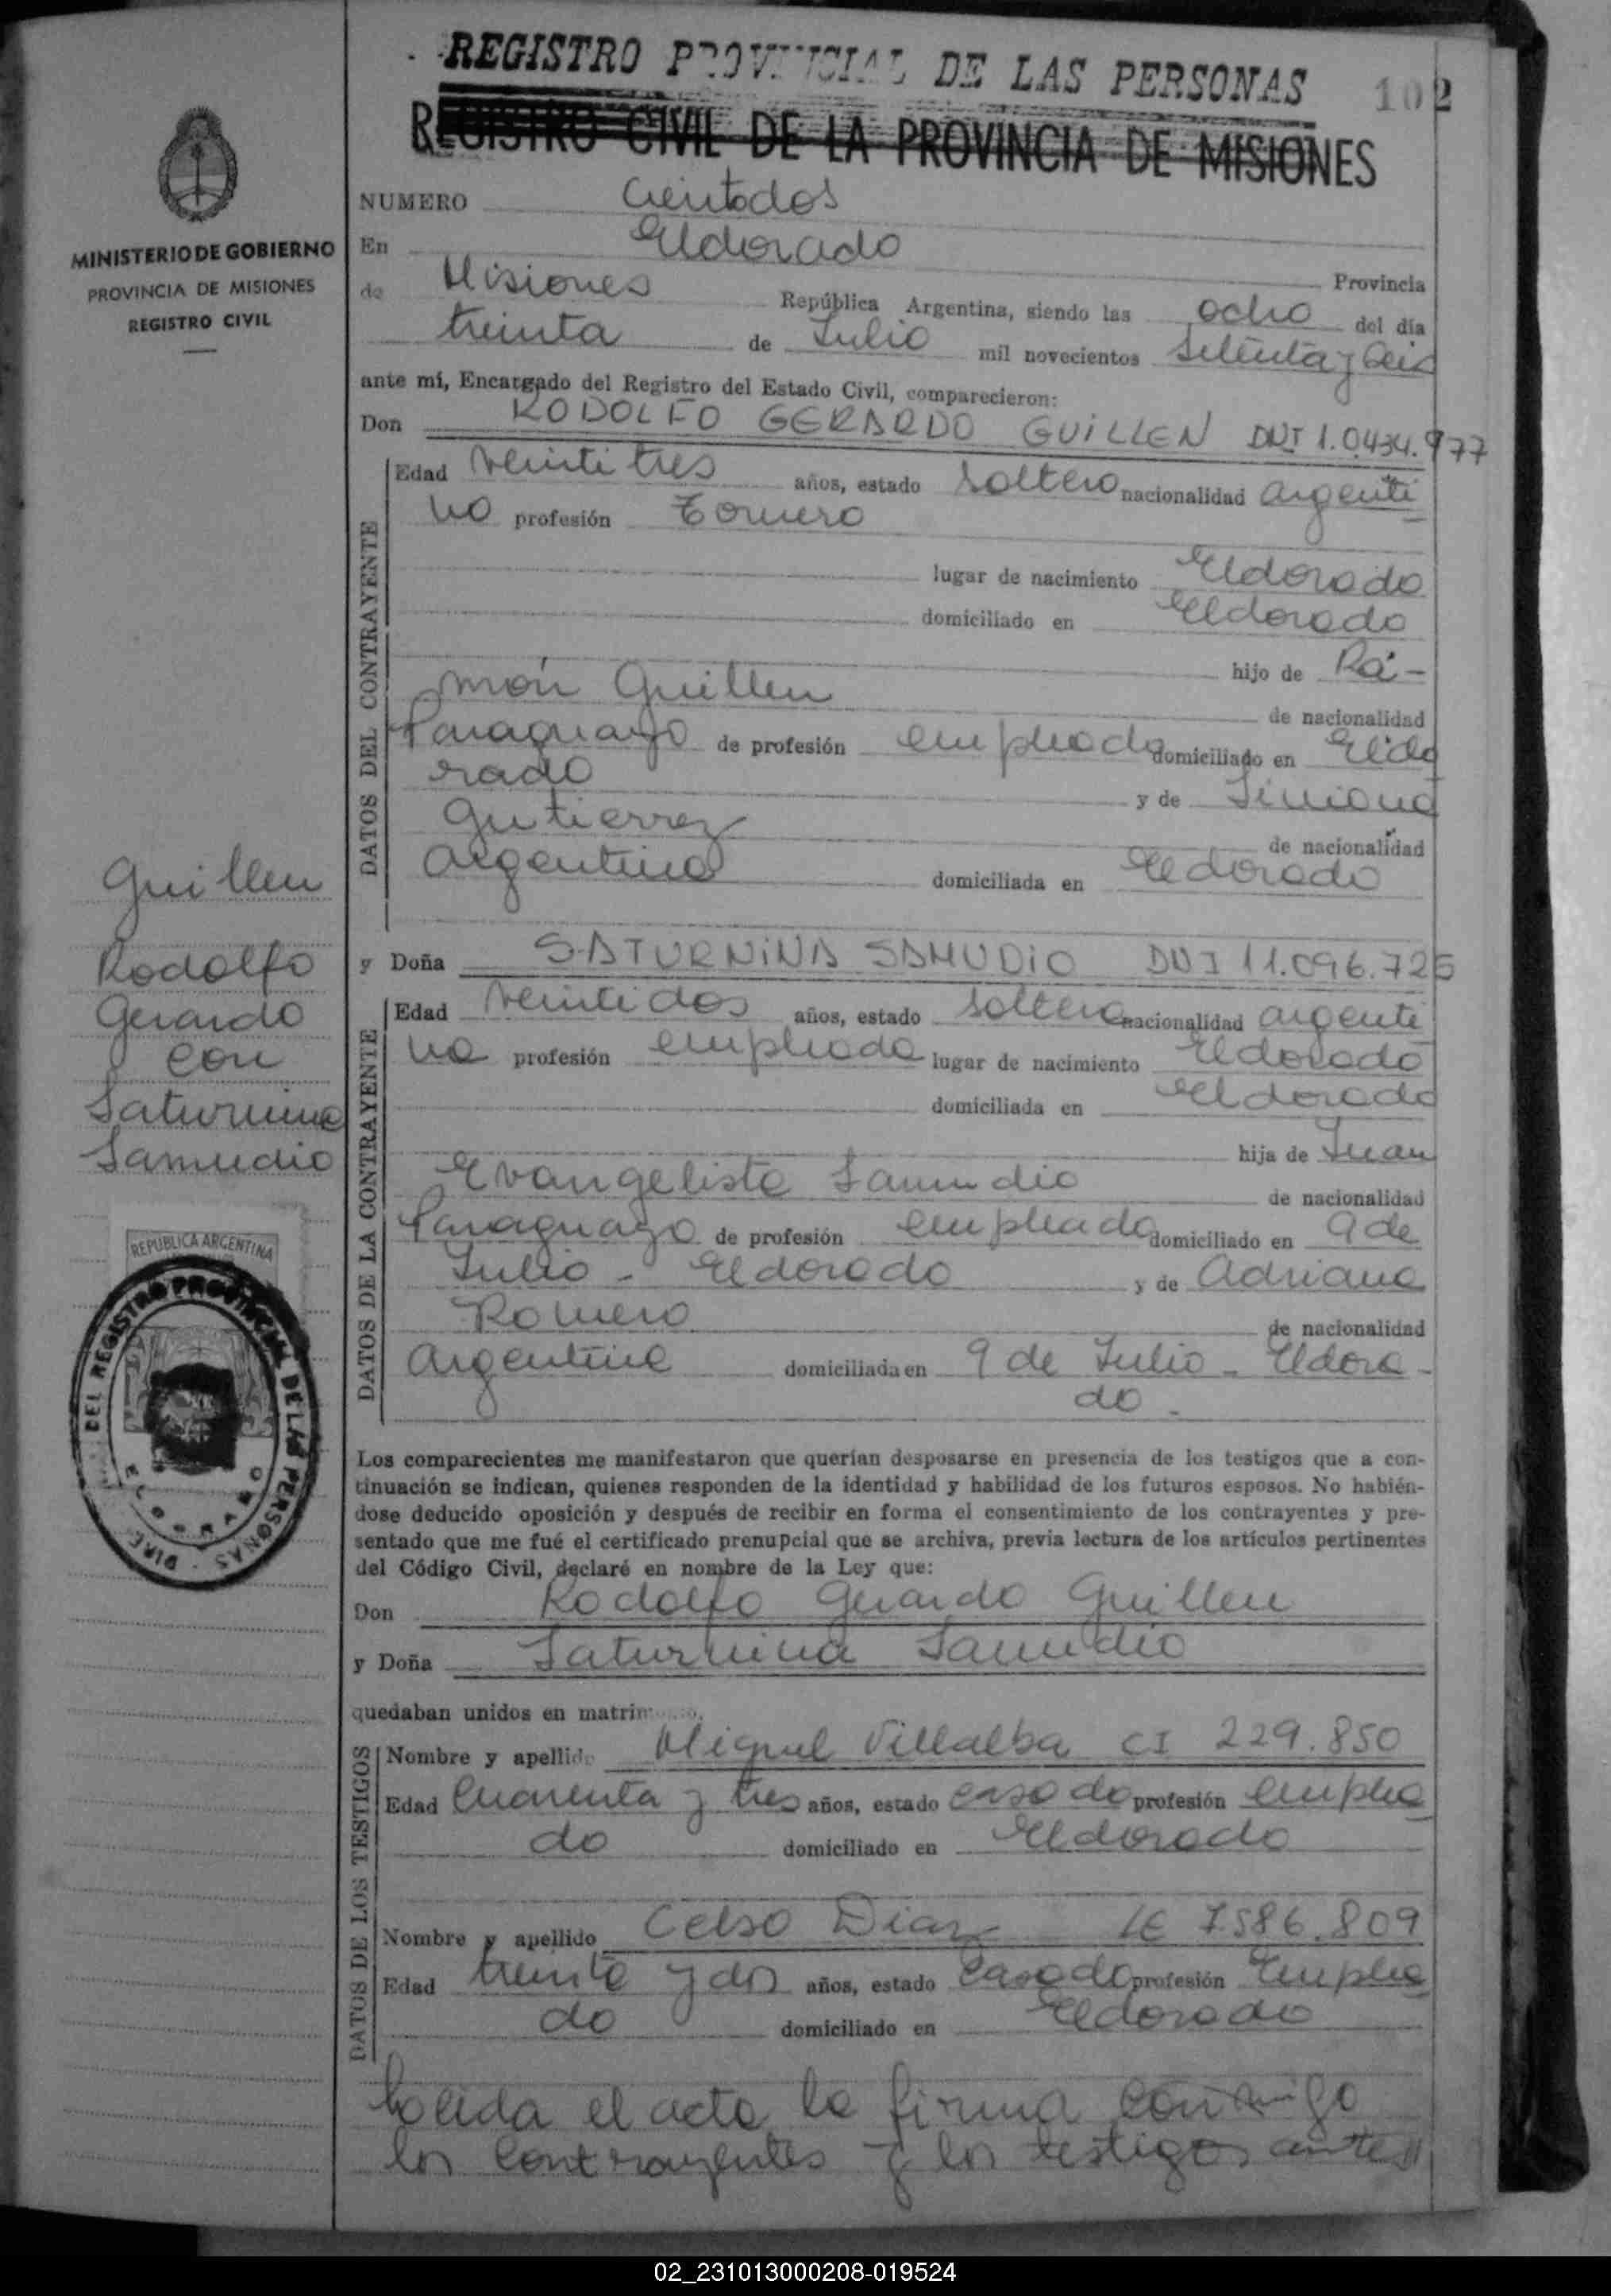 REGISTRO PROVINCIAL DE LAS PERSONAS 102
REGISTRO CIVIL DE LA PROVINCIA DE MISIONES
MINISTERIO DE GOBIERNO
PROVINCIA DE MISIONES
REGISTRO CIVIL
NUMERO Cientodos
En Eldorado
Provincia
de Misiones República Argentina, siendo las ocho del día
treinta de Julio mil novecientos setenta y seis
ante mí, Encargado del Registro del Estado Civil, comparecieron:
Don RODOLFO GERARDO GUILLEN DNI 1.0434.977
DATOS DEL CONTRAYENTE
Edad veintitres años, estado soltero nacionalidad argenti
no profesión Tornero
lugar de nacimiento Eldorado
domiciliado en Eldorado
hijo de Ra-
món Guillen
de nacionalidad
Paraguayo de profesión empleado domiciliado en Eldo
rado
y de Simiona
Gutierrez
de nacionalidad
Argentina domiciliada en Eldorado
Guillen
Rodolfo
Gerardo
con
Saturnina
Samudio
y Doña SATURNINA SAMUDIO DNI 11.096.726
DATOS DE LA CONTRAYENTE
Edad veintidos años, estado soltera nacionalidad argenti
na profesión empleada lugar de nacimiento Eldorado
domiciliada en Eldorado
hija de Juan
Evangelista Samudio
de nacionalidad
Paraguayo de profesión empleado domiciliado en 9 de
Julio - Eldorado y de Adriana
Romero
de nacionalidad
Argentina domiciliada en 9 de Julio - Eldora-
do.
REPUBLICA ARGENTINA
DIRE DEL REGISTRO PROVINCIAL DE LAS PERSONAS
ELDORADO
Los comparecientes me manifestaron que querían desposarse en presencia de los testigos que a con-
tinuación se indican, quienes responden de la identidad y habilidad de los futuros esposos. No habién-
dose deducido oposición y después de recibir en forma el consentimiento de los contrayentes y pre-
sentado que me fué el certificado prenupcial que se archiva, previa lectura de los artículos pertinentes
del Código Civil, declaré en nombre de la Ley que:
Don Rodolfo Gerardo Guillen
y Doña Saturnina Samudio
quedaban unidos en matrimonio.
DATOS DE LOS TESTIGOS
Nombre y apellido Miguel Villalba CI 229.850
Edad Cuarenta y tres años, estado casado profesión emplea
do domiciliado en Eldorado
Nombre y apellido Celso Diaz LE 7586.809
Edad treinta y dos años, estado Casado profesión Emplea
do domiciliado en Eldorado
el acta la firma conmigo
los contrayentes y los testigos antes //
02_231013000208-019524